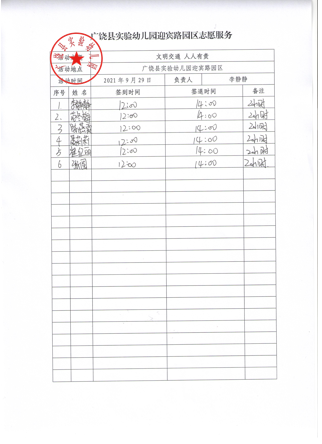 广饶县实验幼儿园迎宾路园区志愿服务
文明交通 人人有责
活动地点 广饶县实验幼儿园迎宾路园区
活动时间 2021年9月29日 负责人 李静静
序号 姓名 签到时间 签退时间 备注
1 12:00 14:00 2小时
2. 12:00 14:00 2小时
3 12:00 14:00 2小时
4 12:00 14:00 2小时
5 12:00 14:00 2小时
6 12:00 14:00 2小时